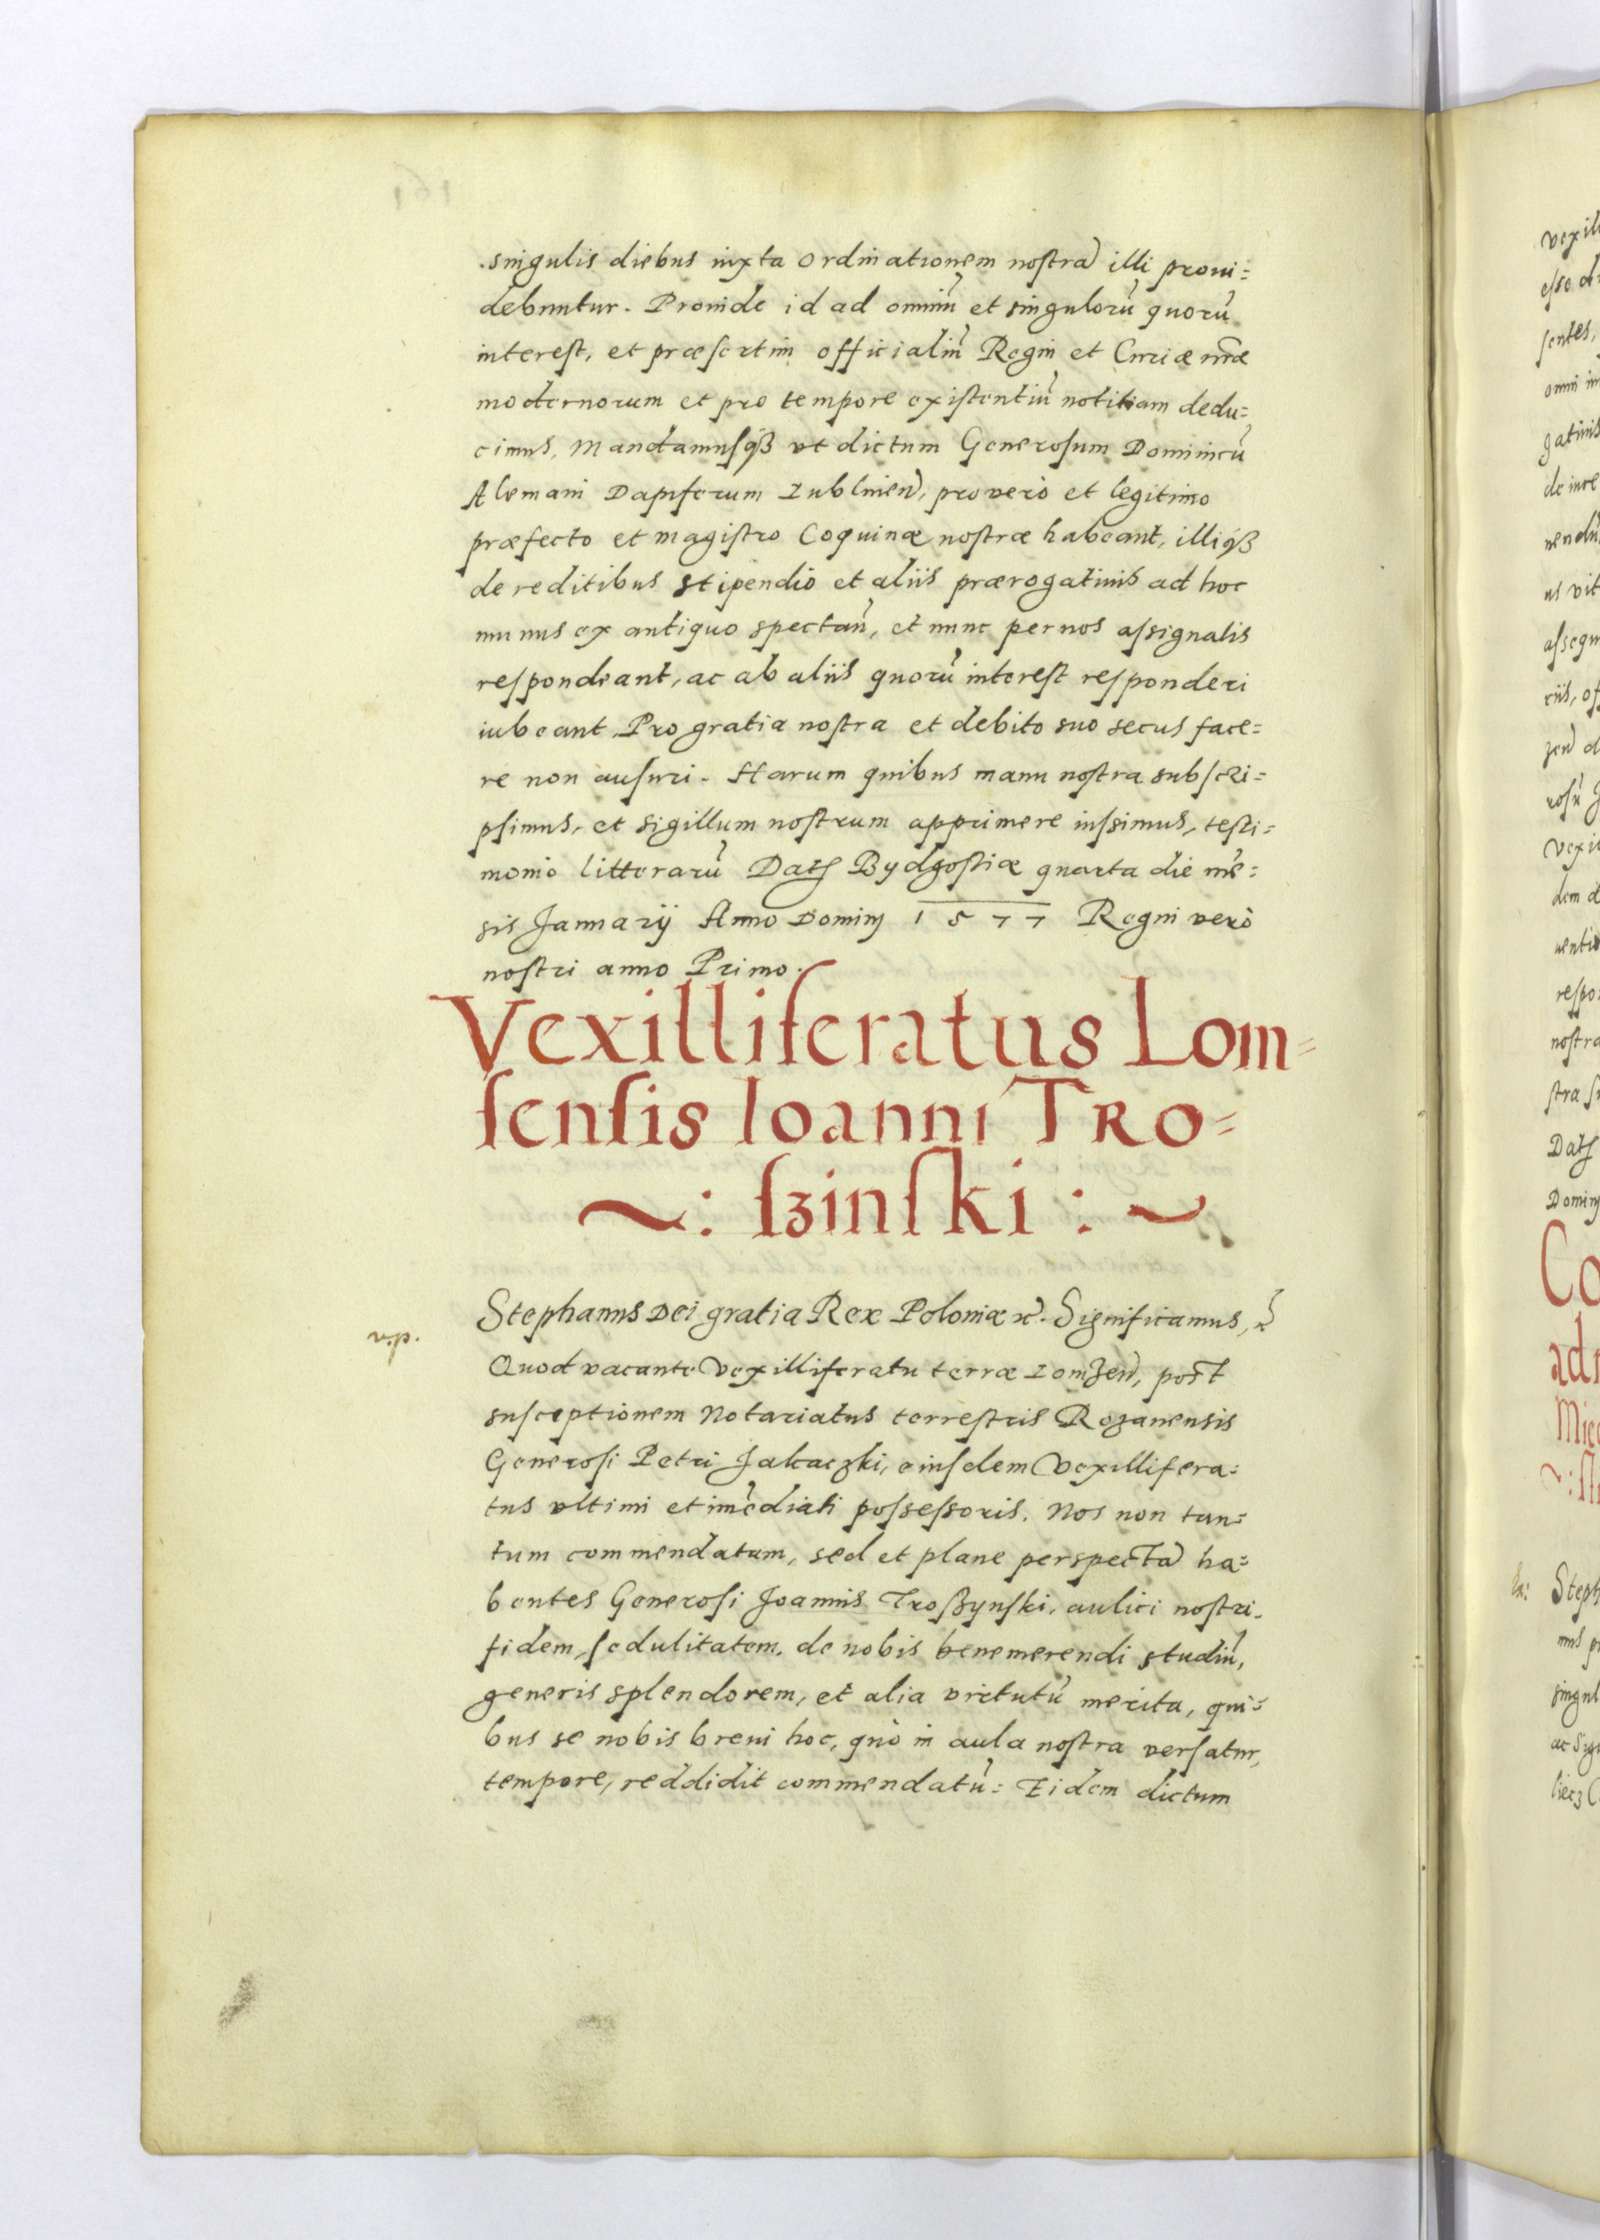 singulis diebus iuxta ordinationem nostrã illi proui=
debuntur. Proinde id ad omniũ et singulorũ quorũ
interest, et præsertim officialiũ Regni et Curiæ nr̃æ
modernorum et pro tempore existentiũ notitiam dedu=
cimus, Mandamusq́ꝫ vt dictum Generosum Dominicũ
Alemani Dapiferum Lublinen̄, pro vero et legitimo
præfecto et magistro Coquinæ nostræ habeant, illiq́ꝫ
de reditibus stipendio et aliis prærogatiuis ad hoc
munus ex antiquo spectan̄, et nunc per nos assignatis
respondeant, ac ab aliis quorũ interest responderi
iubeant, Pro gratia nostra et debito suo secus face=
re non ausuri. Harum quibus manu nostra subscri=
psimus, et sigillum nostrum apprimere iussimus, testi=
monio litterarũ Datꝭ Bydgostiæ quarta die mẽ=
sis Januarij Anno Dominj 1577 Regni verò
nostri anno Primo.
Vexilliferatus Lom=
sensis Ioanni TRO=
~: szinski :~
Stephanus Dei gratia Rex Poloniæ ꝛc̃. Significamus, ꝛc̃
vip.
Quod vacante Vexilliferatu terræ Lomzen̄, post
susceptionem Notariatus terrestris Rozanensis
Generosi Petri Jalcaczki, eiusdem Vexillifera=
tus vltimi et imẽdiati possessoris. Nos non tan=
tum commendatam, sed et plane perspectã ha=
bentes Generosi Joannis Troszynski, aulici nostri,
fidem, sedulitatem, de nobis benemerendi studiũ,
generis splendorem, et alia virtutũ merita, qui=
bus se nobis breui hoc, quò in aula nostra versatur,
tempore, reddidit commendatũ: Eidem dictum